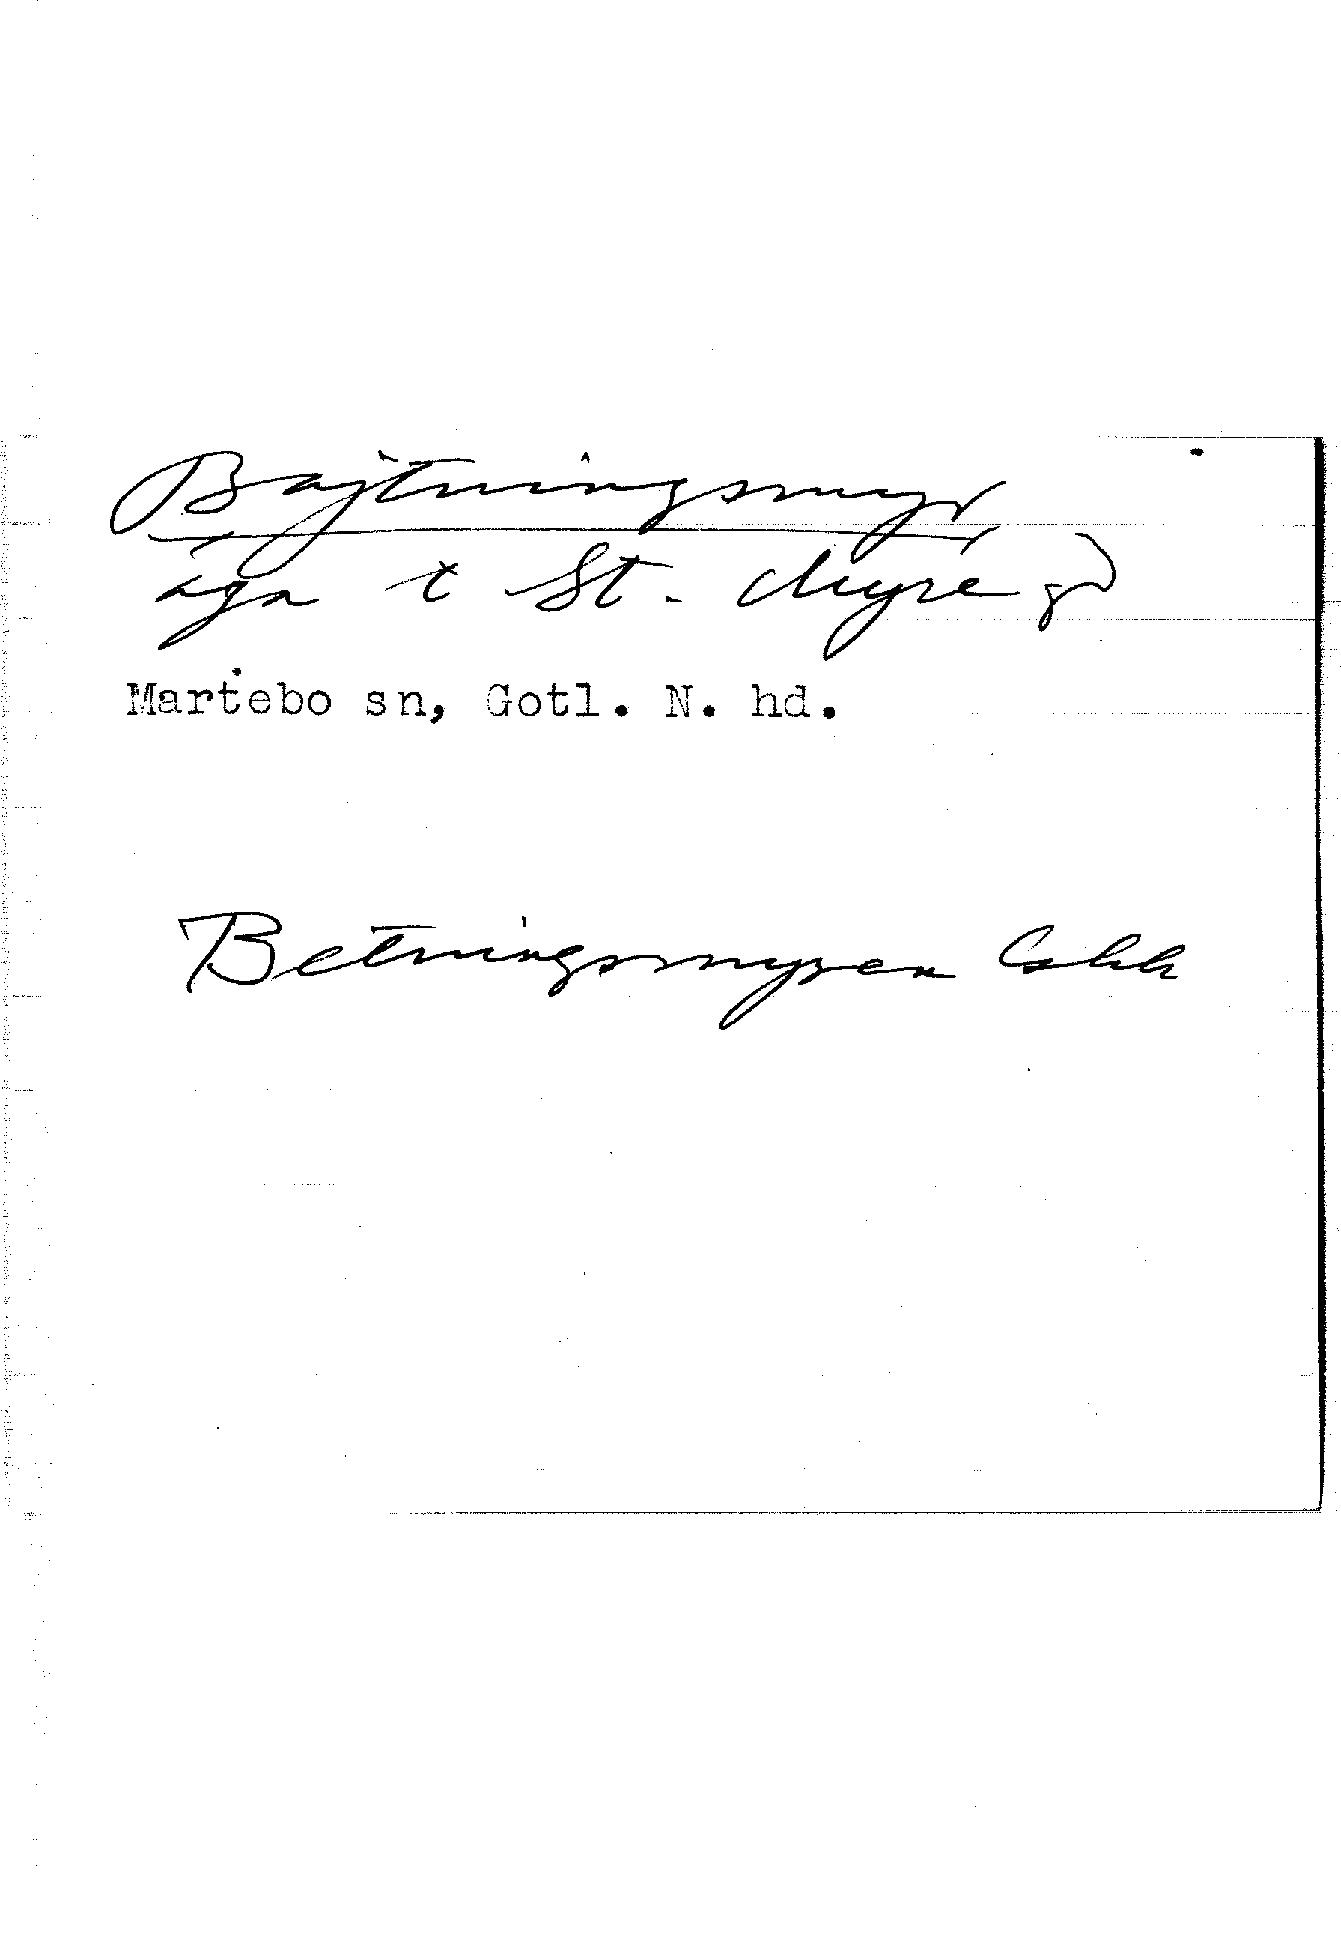 Bajtningsmyr
äga t St. Myre gd
Martebo sn, Gotl. N. hd.
Betningsmyren